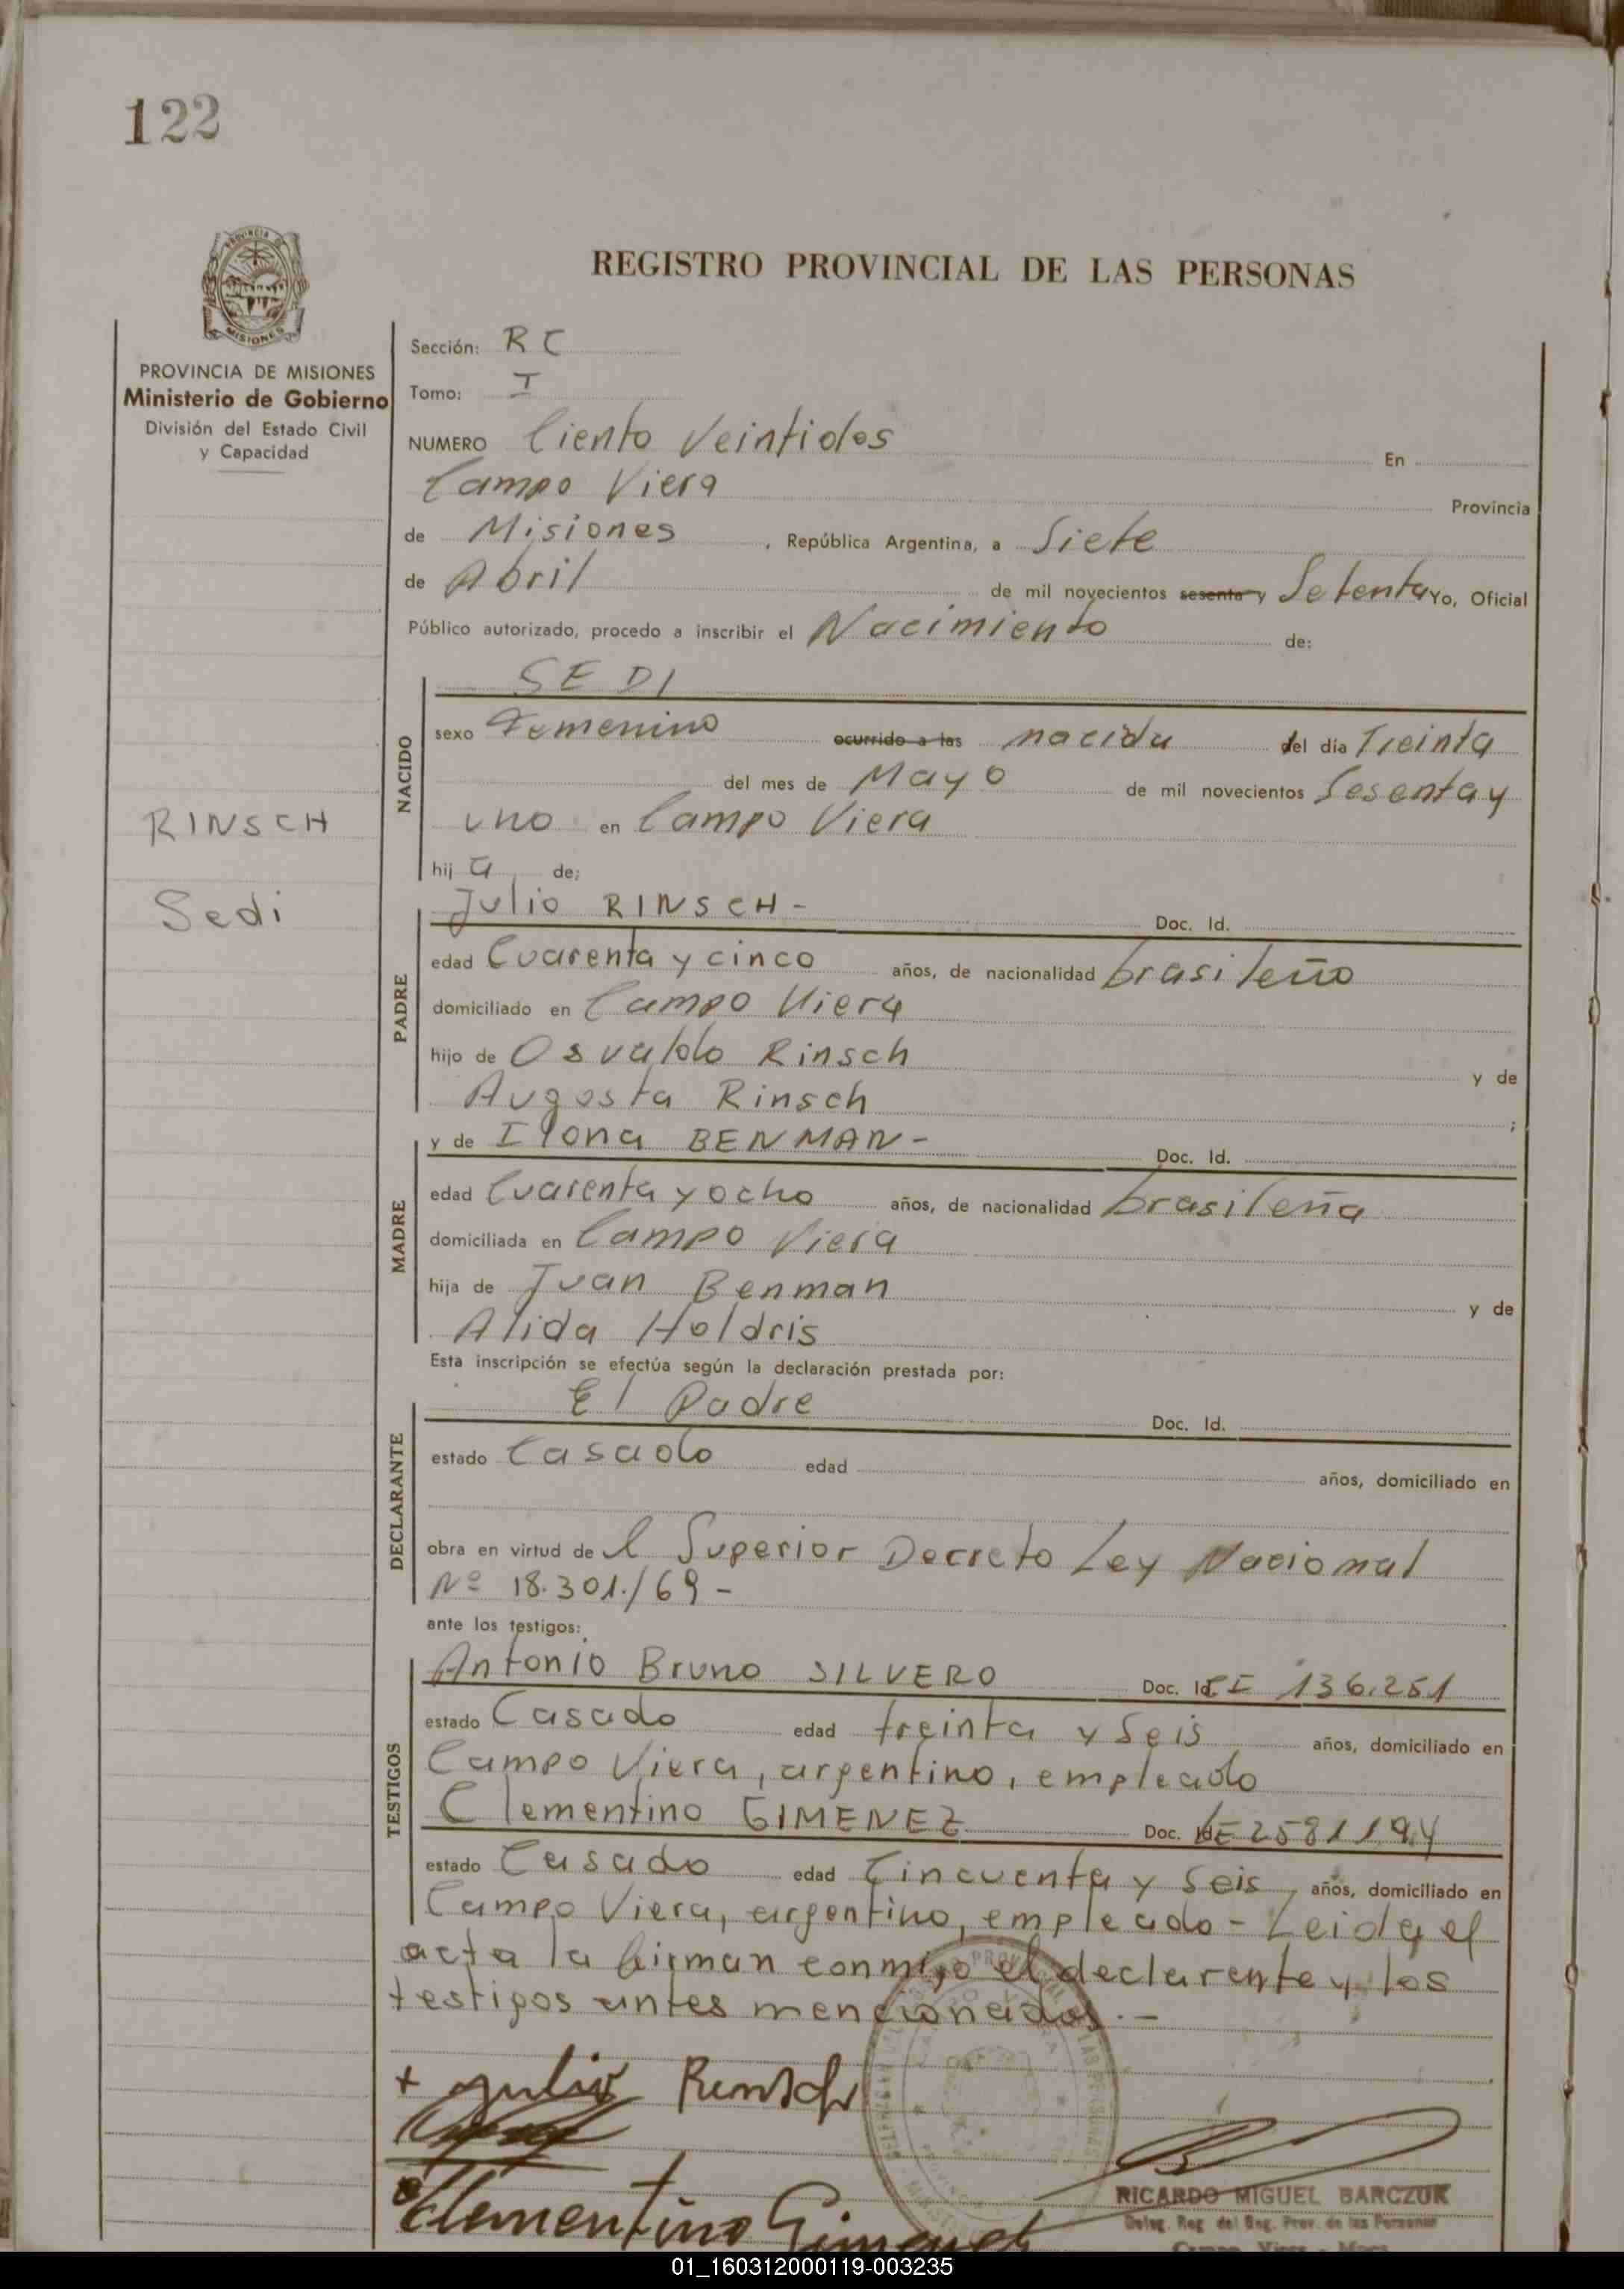 122
PROVINCIA DE
MISIONES
REGISTRO PROVINCIAL DE LAS PERSONAS
PROVINCIA DE MISIONES
Ministerio de Gobierno
División del Estado Civil
y Capacidad
Sección: RC
Tomo: I
NUMERO Ciento Veintidos En
Campo Viera Provincia
de Misiones, República Argentina, a Siete
de Abril de mil novecientos sesenta y Setenta Yo, Oficial
Público autorizado, procedo a inscribir el Nacimiento de:
NACIDO
SEDI
sexo Femenino ocurrido a las nacida del día Treinta
del mes de Mayo de mil novecientos Sesenta y
uno en Campo Viera
hija de:
RINSCH
Sedi
PADRE
Julio RINSCH- Doc. Id.
edad Cuarenta y cinco años, de nacionalidad brasileño
domiciliado en Campo Viera
hijo de Osvaldo Rinsch y de
Augosta Rinsch ;
MADRE
y de Ilona BENMAN- Doc. Id.
edad Cuarenta y ocho años, de nacionalidad brasileña
domiciliada en Campo Viera
hija de Juan Benman y de
Alida Holdris
Esta inscripción se efectúa según la declaración prestada por:
DECLARANTE
El Padre Doc. Id.
estado Casado edad años, domiciliado en
obra en virtud del Superior Decreto Ley Nacional
Nº 18.301./69-
ante los testigos:
TESTIGOS
Antonio Bruno SILVERO Doc. Id. CI 136.251
estado Casado edad treinta y seis años, domiciliado en
Campo Viera, argentino, empleado
Clementino GIMENEZ Doc. Id. LE 2581194
estado Casado edad Cincuenta y seis años, domiciliado en
Campo Viera, argentino, empleado- Leida el
acta la firman conmigo el declarente y los
testigos antes mencionados.-
+ Julio Rinsch
Clementino Gimenez
RICARDO MIGUEL BARCZUK
Deleg. Reg. del Reg. Prov. de las Personas
Campo Viera - Mnes.
01_160312000119-003235